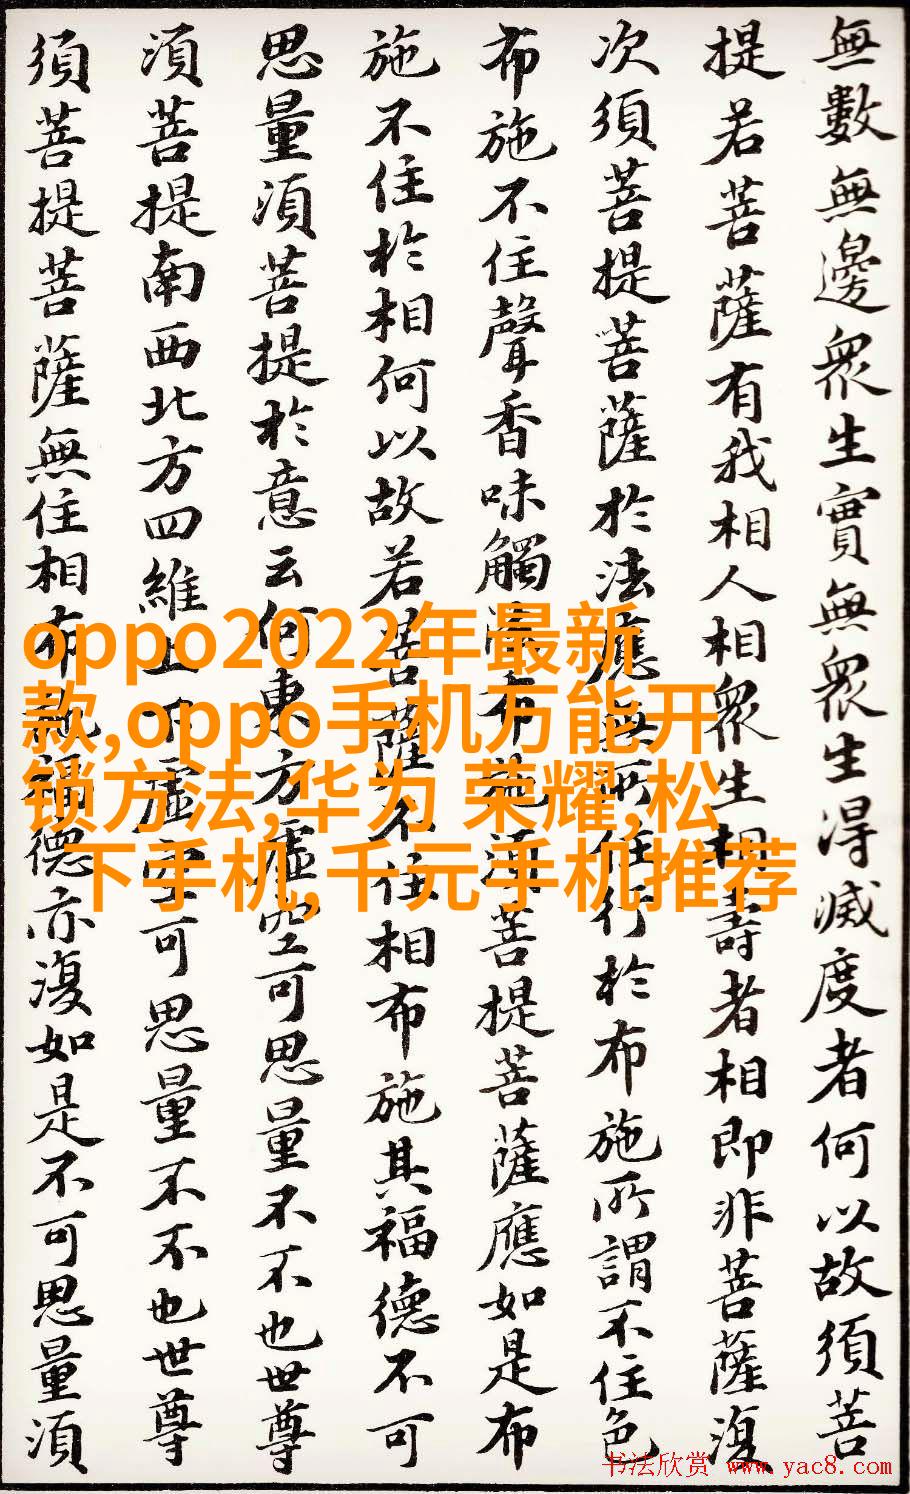 無數無邊眾生實無眾生得滅度者何以故須菩
提若菩薩有我相人相眾生相壽者相即非菩薩復
次須菩提菩薩於法應無所住行於布施所謂不住色
布施不住聲香味觸法布施須菩提菩薩應如是布
施不住於相何以故若菩薩不住相布施其福德不可
思量須菩提於意云何東方虛空可思量不不也世尊
須菩提南西北方四維上下虛空可思量不不也世尊
須菩提菩薩無住相布施福德亦復如是不可思量須
oppo2022年最新
款,oppo手机万能开
锁方法,华为 荣耀,松
下手机,千元手机推荐
书法欣赏 www.yac8.com